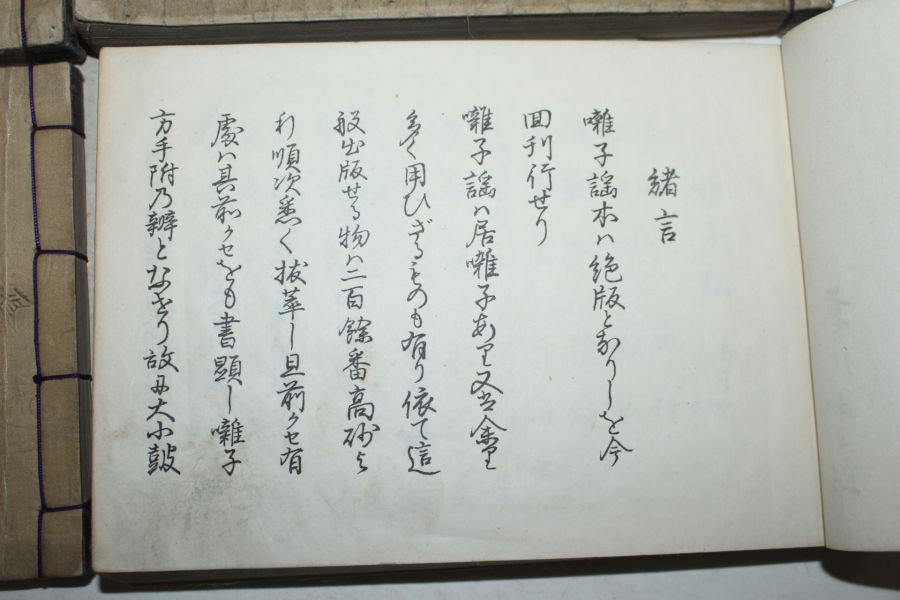 緒言
囃子謡本ハ絶版となりしを今
回刊行せり
囃子謡ハ居囃子あり又余り
多く用ひざるものも有り依て這
般出版せる物ハ二百餘番高砂よ
り順次悉く抜萃し且前クセ有
處ハ其前クセをも書顕し囃子
方手附乃辨となせり故に大小鼓